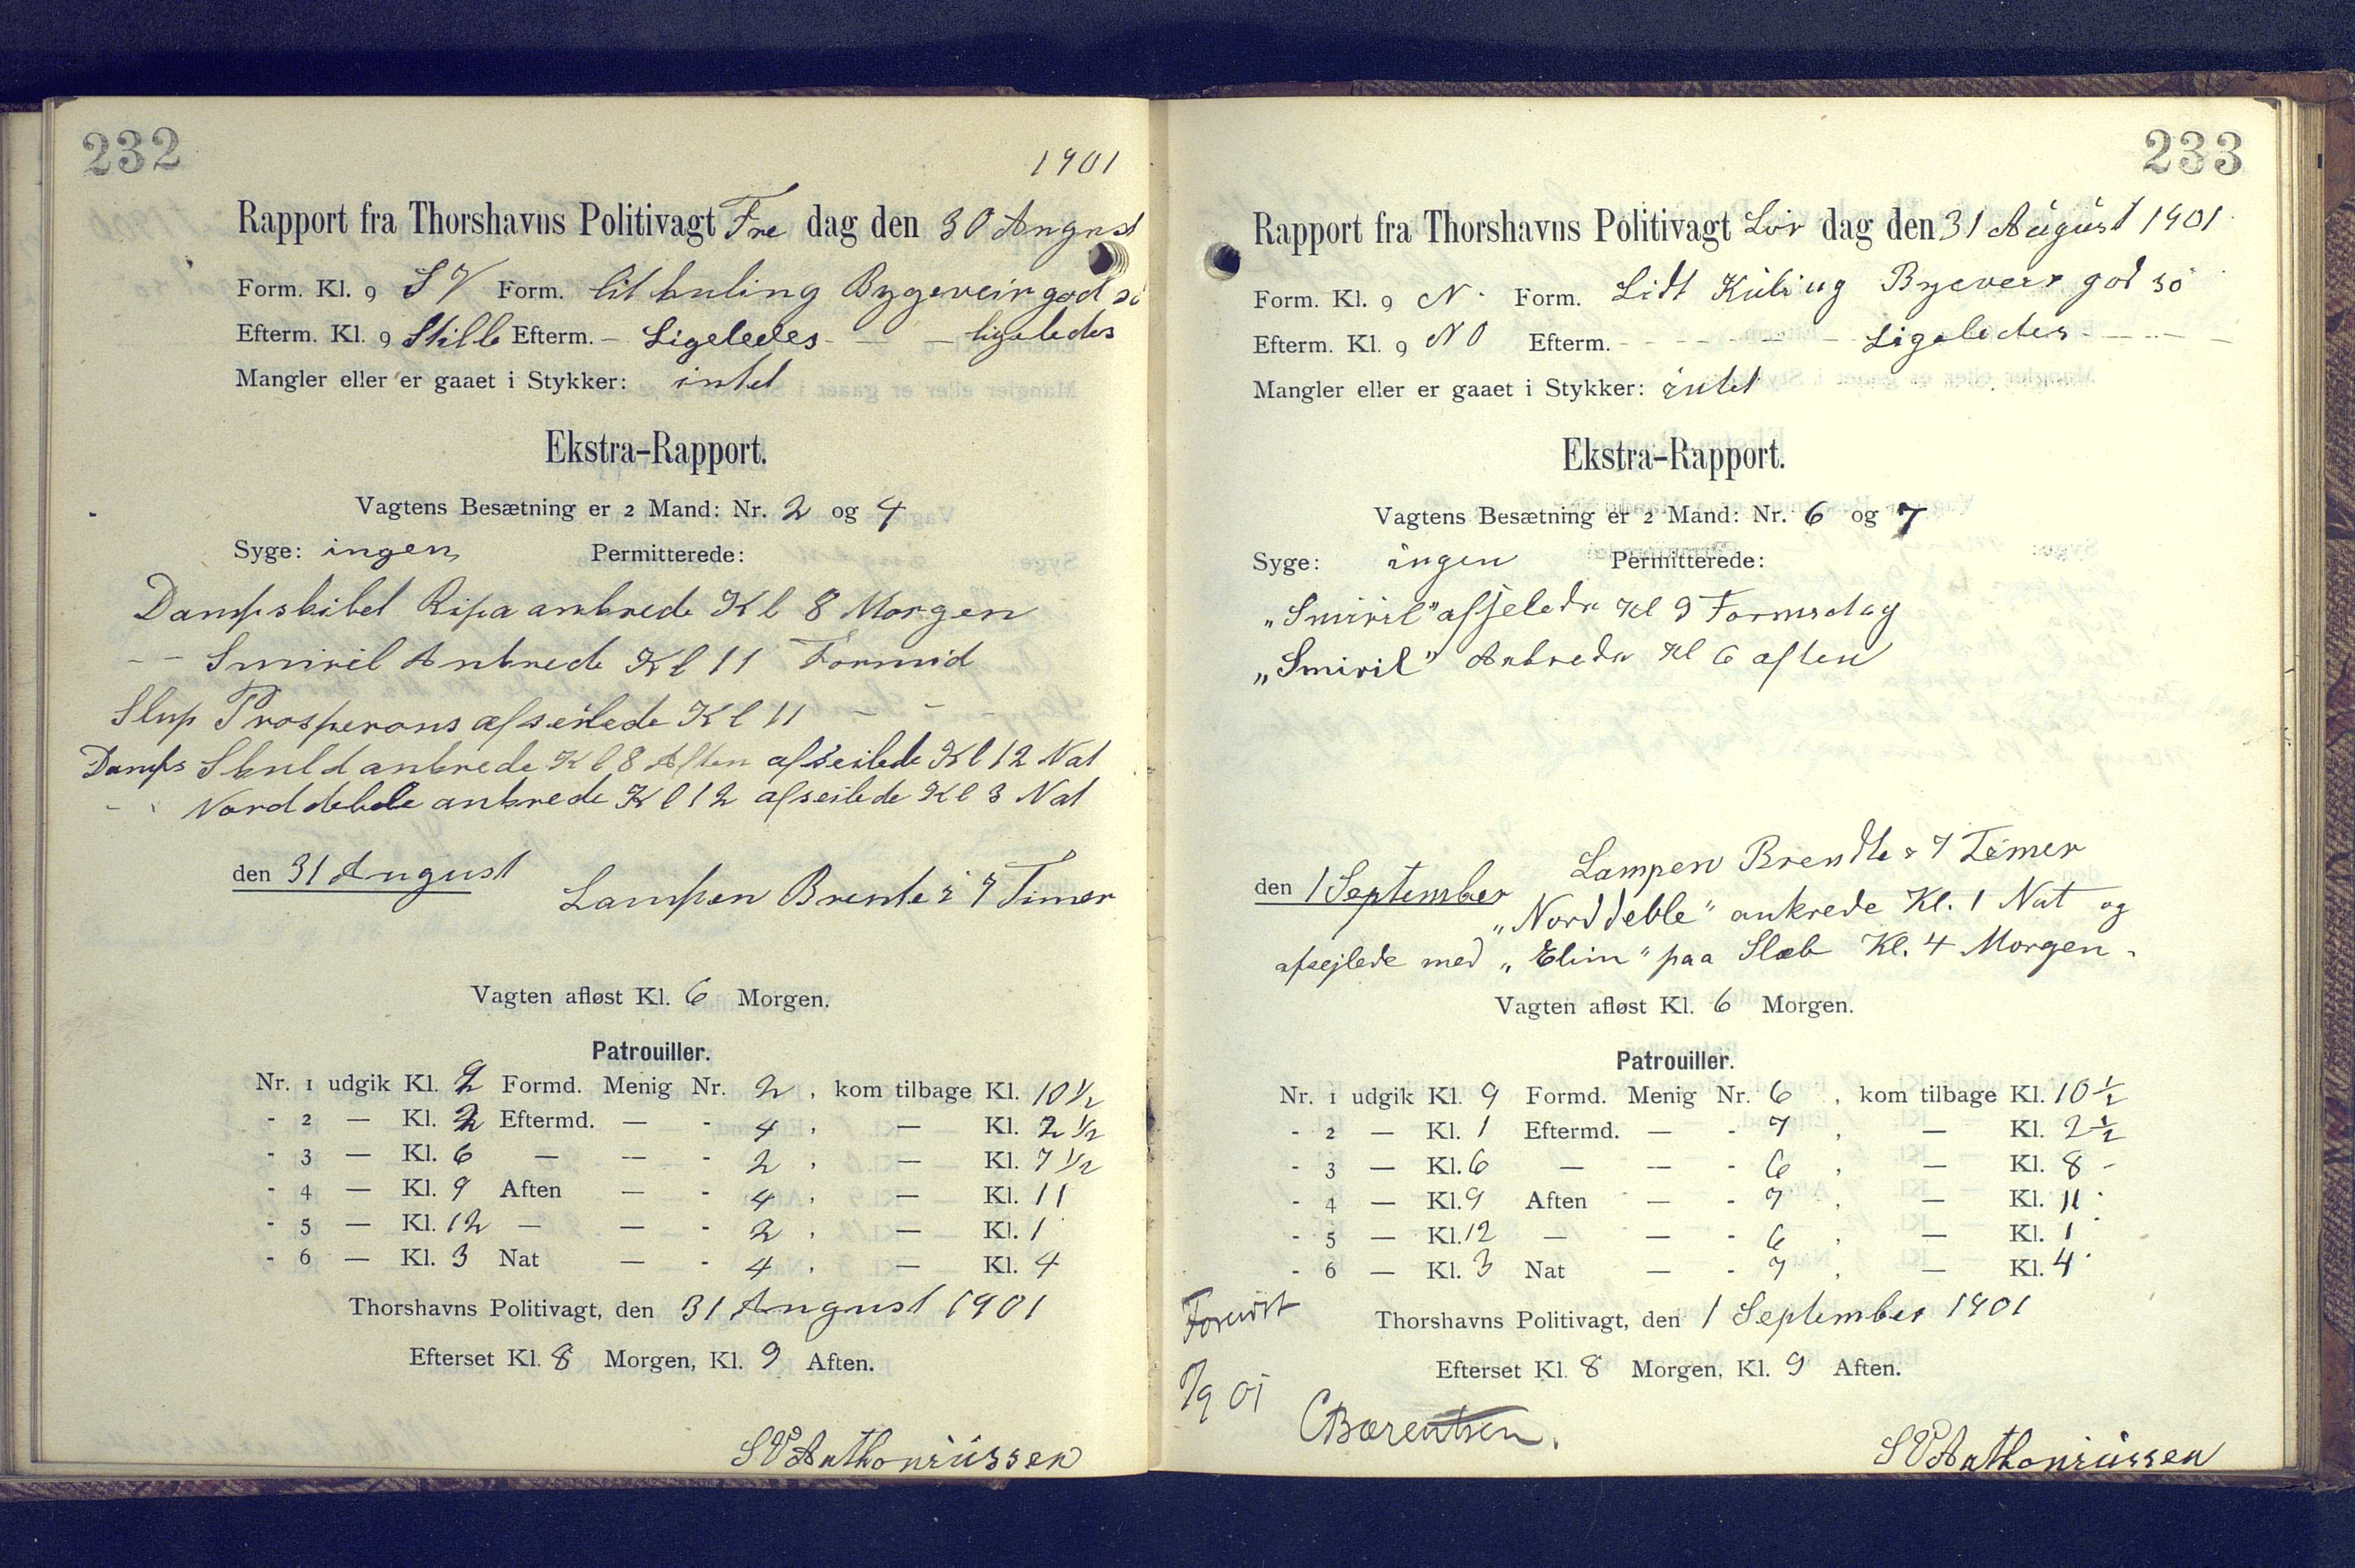 232
1901
Rapport fra Thorshavns Politivagt Fre dag den 30 August
Form. Kl. 9 SV Form. lit kuling Bygeveir god sö
Efterm. Kl. 9 Stille Efterm. - Ligeledes - - - ligeledes
Mangler eller er gaaet i Stykker: intet
Ekstra-Rapport.
Vagtens Besætning er 2 Mand: Nr. 2 og 4
Syge: ingen Permitterede:
Dampskibet Ripa ankrede Kl 8 Morgen
- - Smiril Ankrede Kl 11 Formid
Slup Prosperous afseilede Kl 11 - - -
Damps Skuld ankrede Kl 8 Aften afseilede Kl 12 Nat
- - Norddeble ankrede Kl 12 afseilede Kl 3 Nat
den 31 August
Lampen Brente i 7 Timer
Vagten afløst Kl. 6 Morgen.
Patrouiller.
Nr. 1 udgik Kl. 9 Formd. Menig Nr. 2, kom tilbage Kl. 10 1/2
- 2 — Kl. 2 Eftermd. — - 4, — Kl. 2 1/2
- 3 — Kl. 6 — — - 2, — Kl. 7 1/2
- 4 — Kl. 9 Aften — - 4, — Kl. 11
- 5 — Kl. 12 — — - 2, — Kl. 1
- 6 — Kl. 3 Nat — - 4, — Kl. 4
Thorshavns Politivagt, den 31 August 1901
Efterset Kl. 8 Morgen, Kl. 9 Aften.
SV Anthoniüssen
233
Rapport fra Thorshavns Politivagt Lör dag den 31 August 1901
Form. Kl. 9 N. Form. Lidt Kuling Bygeveir god sö
Efterm. Kl. 9 NO Efterm. - - - - - - Ligeledes - - - -
Mangler eller er gaaet i Stykker: intet
Ekstra-Rapport.
Vagtens Besætning er 2 Mand: Nr. 6 og 7
Syge: ingen Permitterede:
„Smiril" afsjelede Kl 9 Formedag
„Smiril" Ankrede Kl 6 aften
Lampen Brendte i 7 Timer
den 1 September
„Norddeble" ankrede Kl. 1 Nat og
afsejlede med „Elim" paa Slæb Kl. 4 Morgen.
Vagten afløst Kl. 6 Morgen.
Patrouiller.
Nr. 1 udgik Kl. 9 Formd. Menig Nr. 6, kom tilbage Kl. 10 1/2
- 2 — Kl. 1 Eftermd. — - 7, — Kl. 2 1/2
- 3 — Kl. 6 — — - 6, — Kl. 8 -
- 4 — Kl. 9 Aften — - 7, — Kl. 11
- 5 — Kl. 12 — — - 6, — Kl. 1
- 6 — Kl. 3 Nat — - 7, — Kl. 4
Forevist
Thorshavns Politivagt, den 1 September 1901
Efterset Kl. 8 Morgen, Kl. 9 Aften.
1/9 01
CBærentsen.
SV Anthoniüssen